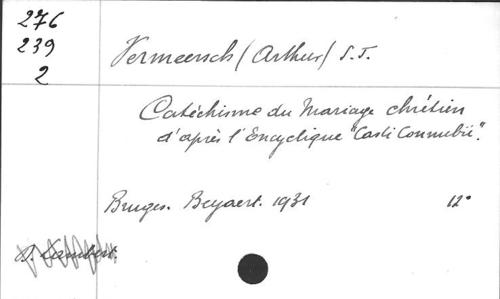 276
239
2
Vermeersch (Arthur) S.J.
Catéchisme du Mariage chrétien
d'après l'Encyclique "Casti Connubii".
Bruges. Beyaert. 1931 12°